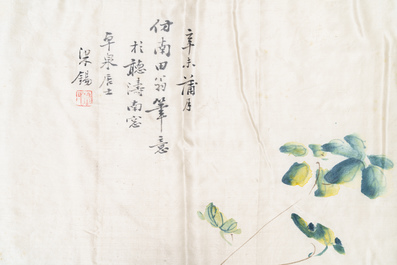 辛未蒲月
仿南田翁筆意
於聽濤南窓
卓泉居士
梁錫